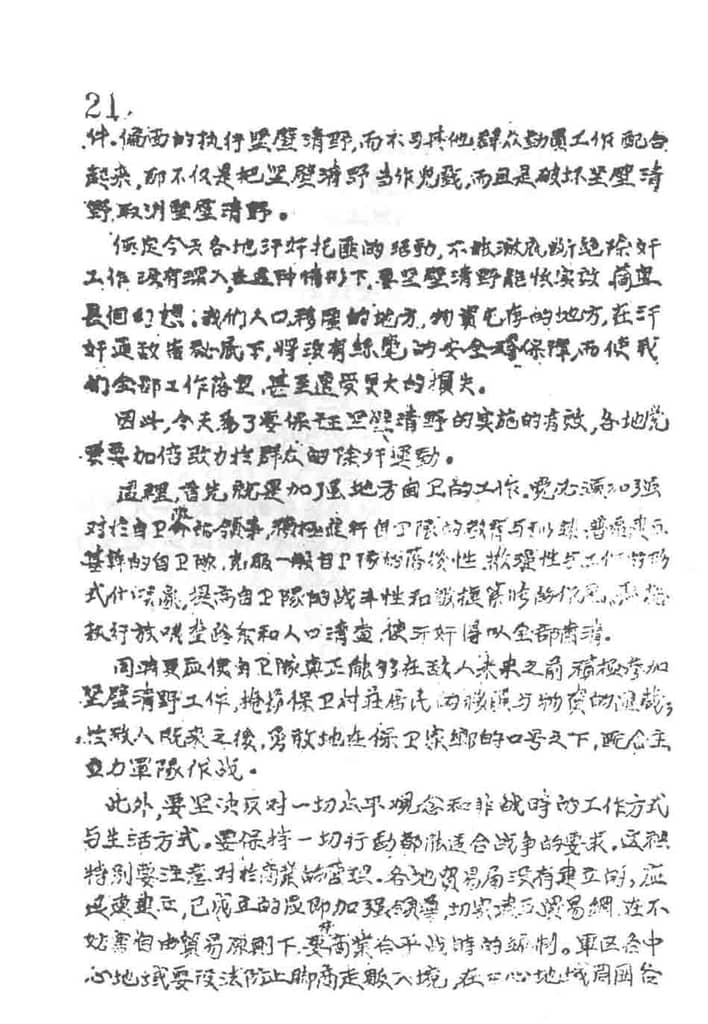 21.
件。偏面的执行坚壁清野,而不与其他群众動員工作配合
起来,那不仅是把坚壁清野当作兒戏,而且是破坏坚壁清
野,取消坚壁清野。
假定今天各地汗奸托匪的活動,不能澈底断绝除奸
工作没有深入,在這种情形下,要坚壁清野能收实效,簡直
是個幻想;我们人口移匿的地方,物資屯存的地方,在汗
奸通敌告秘底下,将没有絲毫的安全確保障,而使我
们全部工作落空,甚至遭受更大的損失。
因此,今天為了要保証坚壁清野的实施的有效,各地党
要加倍致力於群众的除奸運動。
這裡,首先就是加强地方自卫的工作。党必須加强
对於自卫队的領導,積極進行自卫隊的教育与訓練,普遍建立
基幹的自卫隊,克服一般自卫隊的落後性,散漫性与工作的形
式什現象,提高自卫隊的战斗性和
执行放哨查路条和人口清查,使汗奸得以全部肅清。
同時更应使自卫隊真正能够在敌人未来之前,積極参加
坚壁清野工作,掩护保卫村莊居民的移匿与物資的
敌人既来之後,勇敢地在保卫家鄉的口号之下,配合主
力軍隊作战。
此外,要坚决反对一切太平观念和非战時的工作方式
与生活方式。要保持一切行動都能适合战争的要求。这裡
特别要注意对於商業的管理。各地貿易局没有建立的,应
迅速建立,已成立的应即加强領導,切实建立貿易網,在不
妨害自由貿易原則下,要使商業合乎战時的編制。軍区各中
心地域要设法防止脚商走販入境,在中心地域周围各